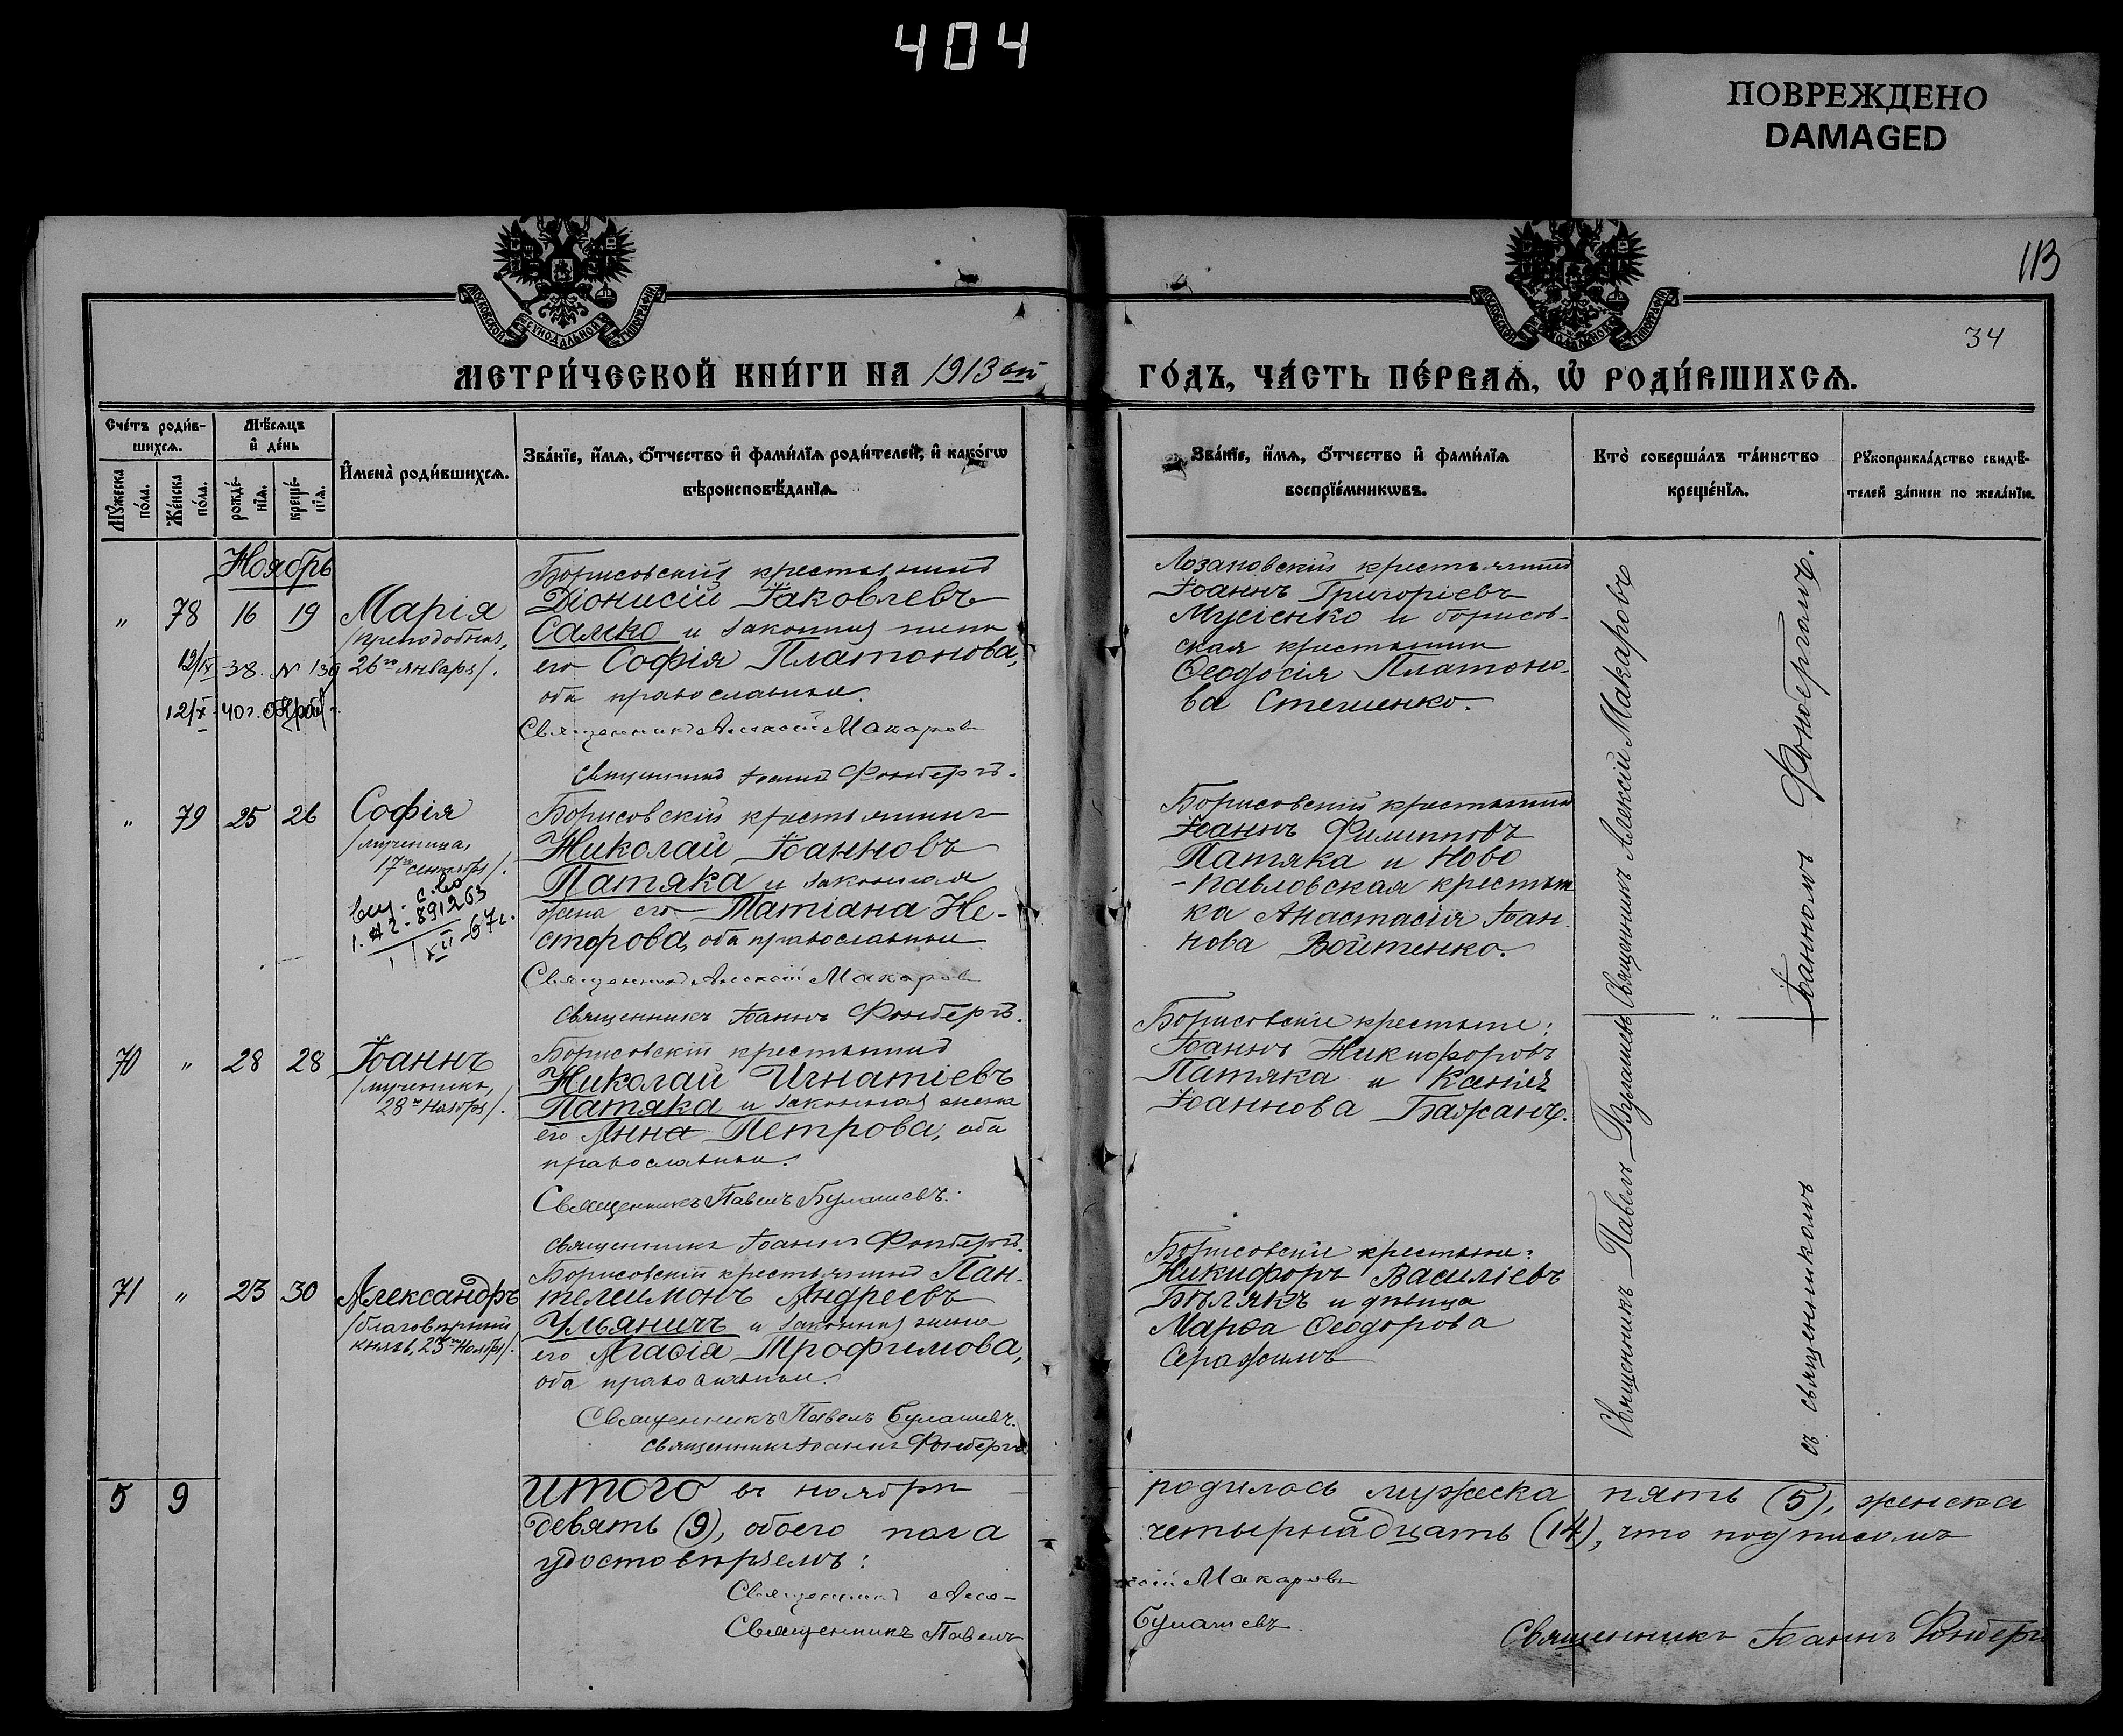 404
ПОВРЕЖДЕНО
DAMAGED
МОСКОВСКОЙ СУНОДАЛЬНОЙ ТИПОГРАФІИ
МОСКОВСКОЙ СУНОДАЛЬНОЙ ТИПОГРАФІИ
113
34
МЕТРИ́ЧЕСКОЙ КНИ́ГИ НА 1913 ый
ГО́ДЪ, ЧА́СТЬ ПЕ́РВАѦ, Ѡ҆ РОДИ́ВШИХСѦ.
Сче́тъ роди́в-
шихсѧ.
Мꙋ́жеска по́ла.
Же́нска по́ла.
Мѣ́сѧцъ
и҆ де́нь
рожде́-
нїѧ.
креще́-
нїѧ.
И҆мена̀ роди́вшихсѧ.
Зва́нїе, и҆́мѧ, ѻ҆́тчество и҆ фами́лїѧ роди́телей, и҆ како́гѡ
вѣроисповѣ́данїѧ.
Зва́нїе, и҆́мѧ, ѻ҆́тчество и҆ фами́лїѧ
воспрїе́мникѡвъ.
Кто̀ соверша́лъ та́инство
креще́нїѧ.
Рꙋкоприкла́дство свидѣ́-
телей за́писи по жела́нїю.
Ноябрь
" 78 16 19
Марія
/преподобная,
26го января/.
12/IX 38. N 139
12/X 40г.
Борисовскій крестьянинъ
Діонисій Іаковлевъ
Самко и законная жена
его Софія Платонова,
оба православные.
Священникъ Алексій Макаровъ
Священникъ Іоаннъ Фонбергъ.
Лозановскій крестьянинъ
Іоаннъ Григоріевъ
Мусіенко и борисов-
ская крестьянка
Ѳеодосія Платоно-
ва Стешенко.
" 79 25 26
Софія
/мученица,
17го сентября/.
891263
Борисовскій крестьянинъ
Николай Іоанновъ
Патяка и законная
жена его Татіана Не-
сторова, оба православные
Священникъ Алексій Макаровъ
Священникъ Іоаннъ Фонбергъ.
Борисовскій крестьянинъ
Іоаннъ Филипповъ
Патяка и Ново
-павловская крестьян
ка Анастасія Іоан
нова Войтенко.
70 " 28 28
Іоаннъ
/мученикъ,
28го ноября/.
Борисовскій крестьянинъ
Николай Игнатіевъ
Патяка и законная жена
его Анна Петрова, оба
православные.
Священникъ Павелъ Булашевъ.
Священникъ Іоаннъ Фонбергъ.
Борисовскіе крестьяне:
Іоаннъ Никифоровъ
Патяка и
Іоаннова Бажанъ.
71 " 23 30
Александръ
/благовѣрный
князь, 23го ноября/.
Борисовскій крестьянинъ Пан-
телеимонъ Андреевъ
Ульяничъ и законная жена
его Трофимова,
оба православные.
Священникъ Павелъ Булашевъ.
Священникъ Іоаннъ Фонбергъ
Борисовскіе крестьяне:
Никифоръ Василіевъ
Бѣлякъ и дѣвица
Марѳа Ѳеодорова
Серажимъ
Священникъ Павелъ Булашевъ
Священникъ Алексій Макаровъ
съ священникомъ
Іоанномъ Фонбергомъ.
5 9
Итого въ ноябрѣ
родилось мужеска пять (5), женска
девять (9), обоего пола
четырнадцать (14), что подписомъ
удостовѣряемъ:
Священникъ Алек-
сій Макаровъ
Священникъ Павелъ
Булашевъ.
Священникъ Іоаннъ Фонбергъ